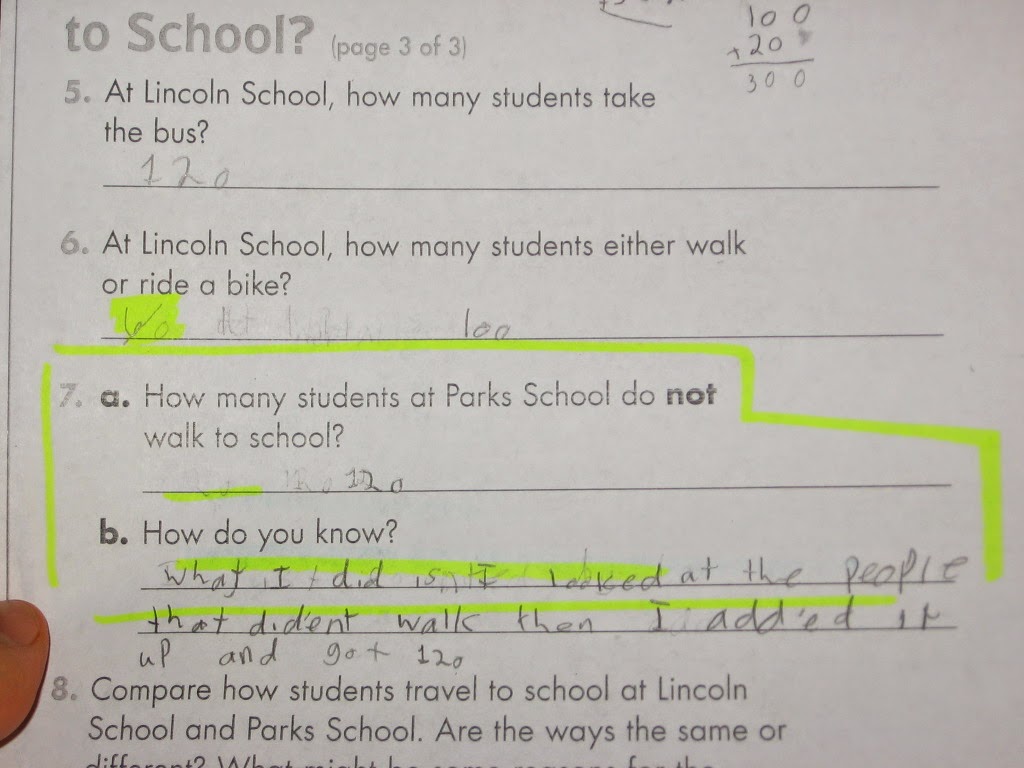 to School? (page 3 of 3)
100
+20
300
5. At Lincoln School, how many students take
the bus?
120
6. At Lincoln School, how many students either walk
or ride a bike?
100
7. a. How many students at Parks School do not
walk to school?
120
b. How do you know?
what I did is I looked at the people
that did'ent walk then I add'ed it
up and got 120
8. Compare how students travel to school at Lincoln
School and Parks School. Are the ways the same or
different? What might be some reasons for the